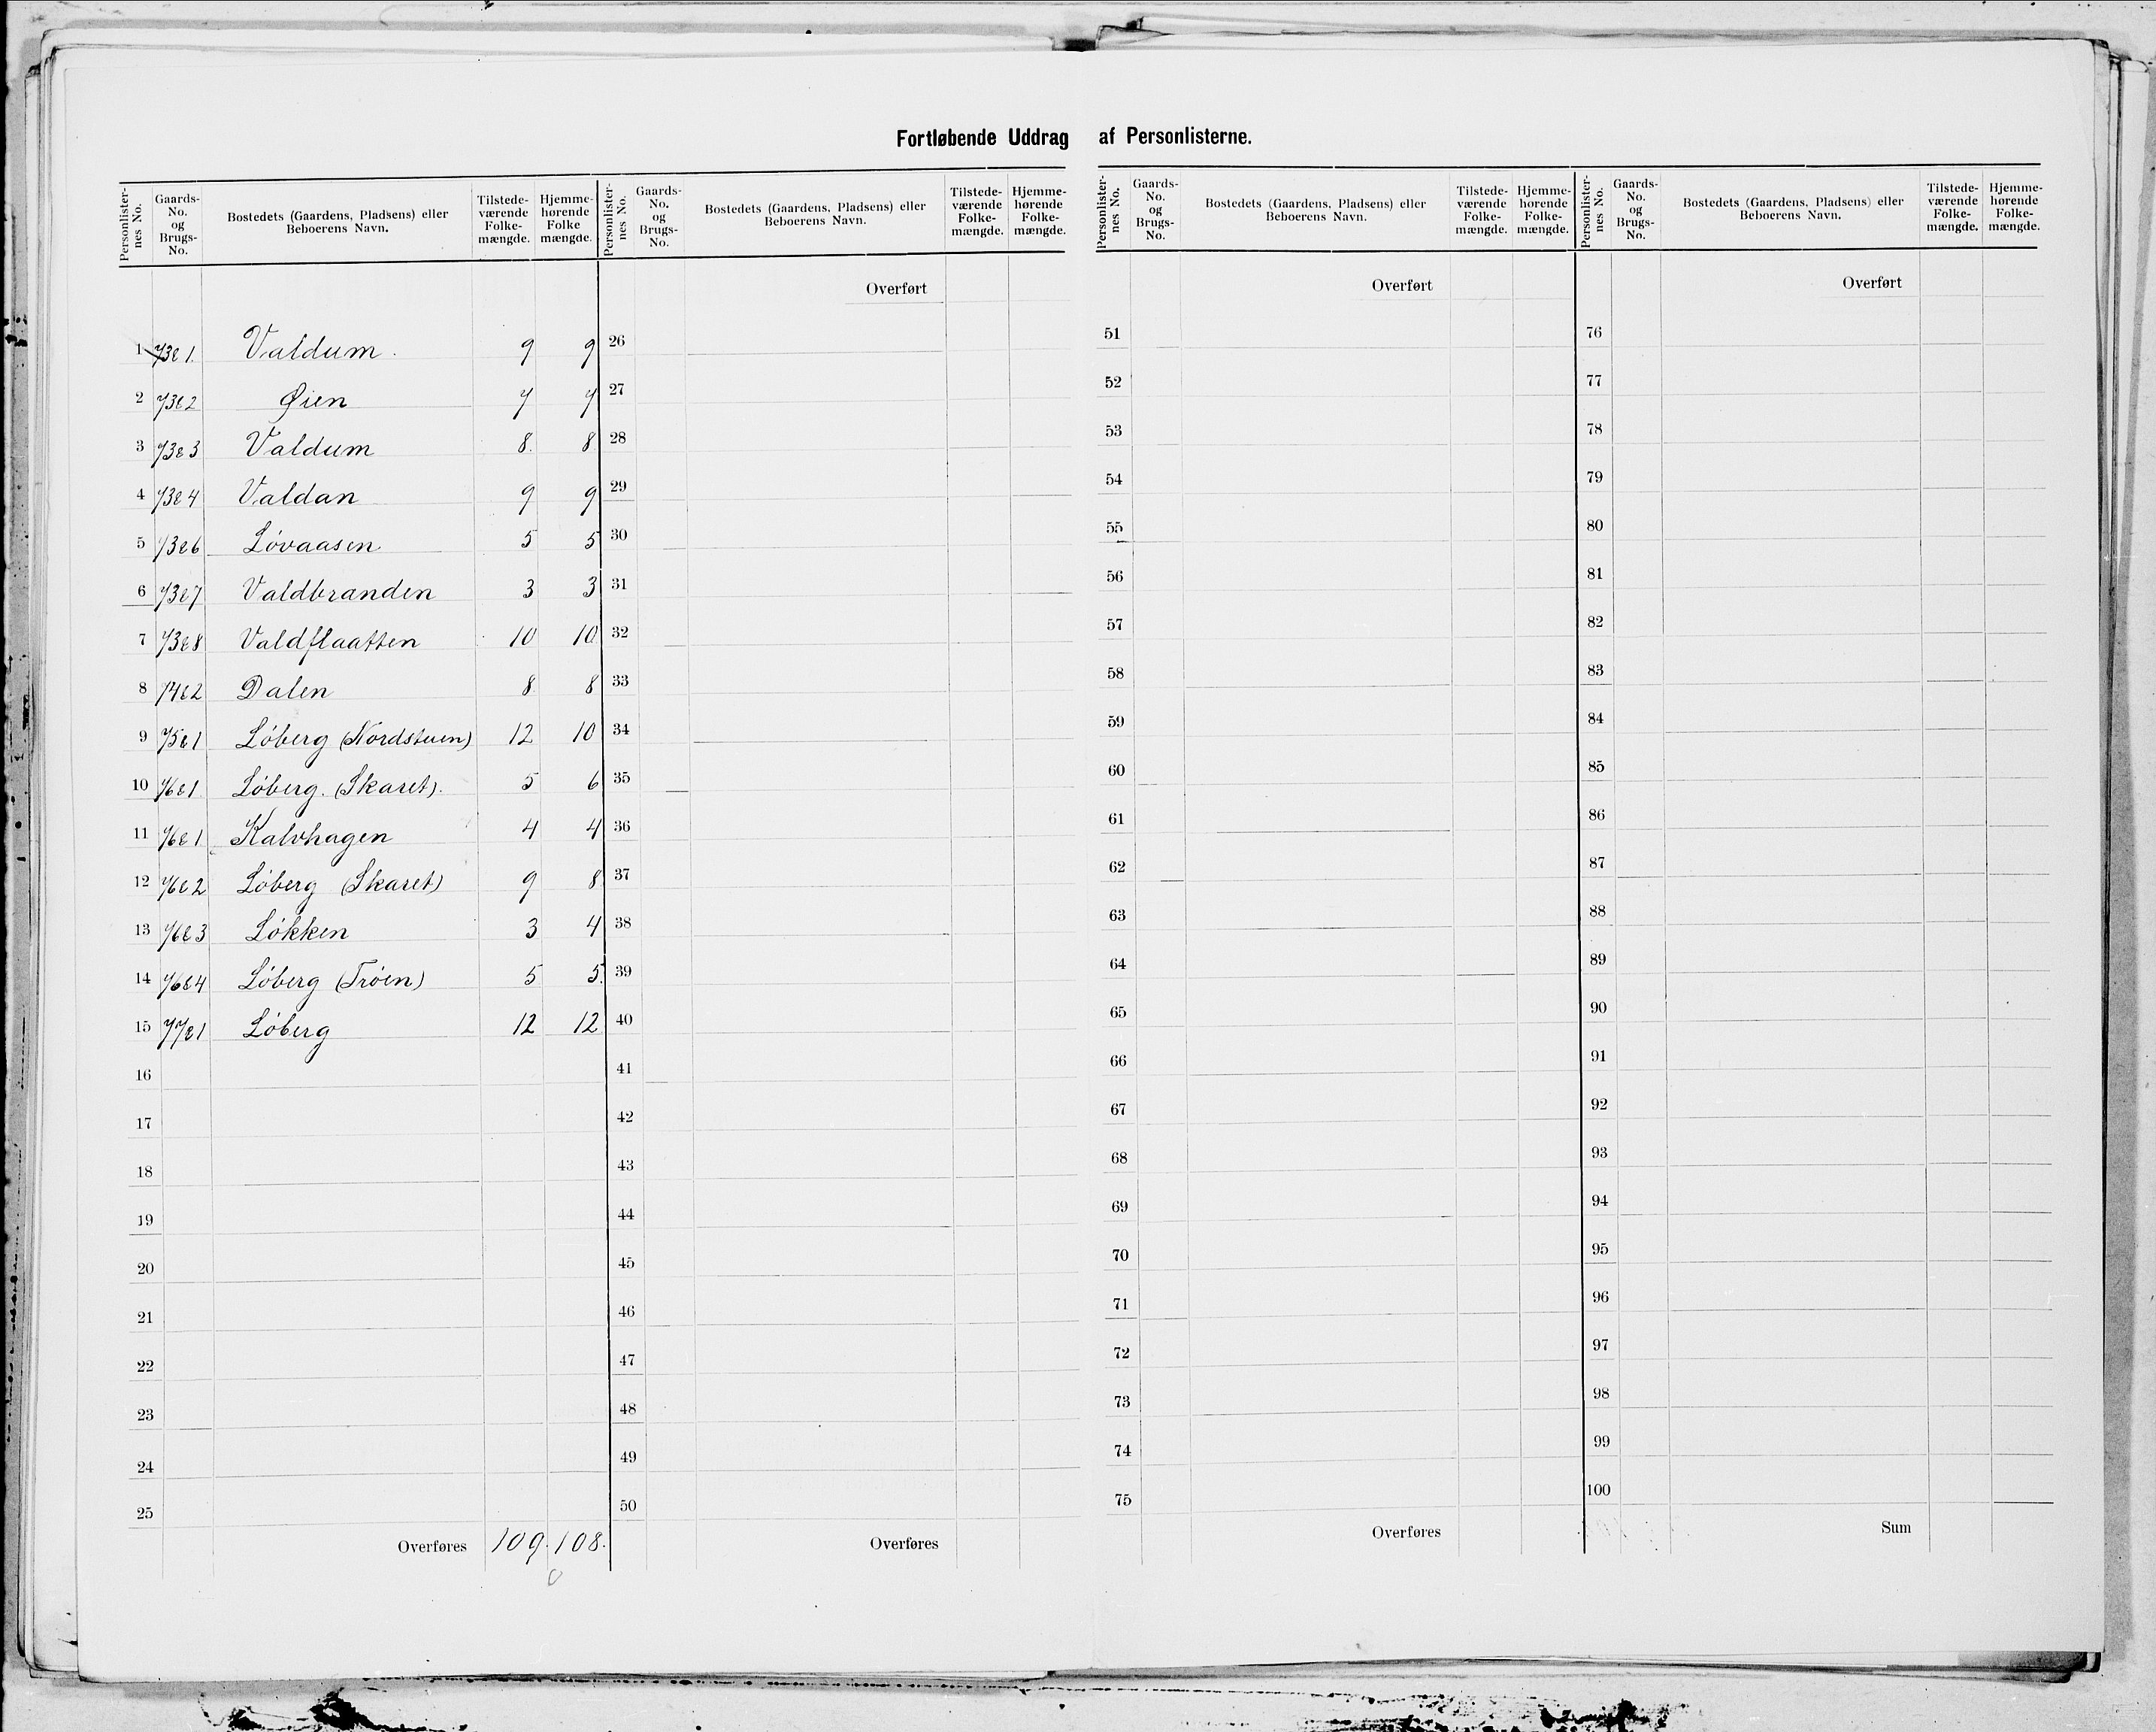 Fortløbende Uddrag af Personlisterne.
Personlister-nes No. | Gaards-No. og Brugs-No. | Bostedets (Gaardens, Pladsens) eller Beboerens Navn. | Tilstede-værende Folke-mængde. | Hjemme-hørende Folke mængde.
1 73 & 1. Valdum. 9 9
2 73 & 2 Øien 7 7
3 73 & 3 Valdum 8. 8
4 73 & 4 Valdan 9 9
5 73 & 6 Løvaasen 5 5
6 73 & 7 Valdbranden 3 3
7 73 & 8 Valdflaatten 10 10.
8 74 & 2 Dalen 8 8
9 75 & 1 Løberg (Nordstuen) 12 10
10 76 & 1 Løberg. (Skaret). 5 6
11 76 & 1 Kalvhagen 4 4
12 76 & 2 Løberg (Skaret) 9 8
13 76 & 3 Løkken 3 4
14 76 & 4 Løberg (Trøen) 5 5.
15 77 & 1 Løberg 12 12
16
17
18
19
20
21
22
23
24
25
Overføres 109. 108.
Personlister-nes No. | Gaards-No. og Brugs-No. | Bostedets (Gaardens, Pladsens) eller Beboerens Navn. | Tilstede-værende Folke-mængde. | Hjemme-hørende Folke-mængde.
Overført
26
27
28
29
30
31
32
33
34
35
36
37
38
39
40
41
42
43
44
45
46
47
48
49
50
Overføres
Personlister-nes No. | Gaards-No. og Brugs-No. | Bostedets (Gaardens, Pladsens) eller Beboerens Navn. | Tilstede-værende Folke-mængde. | Hjemme-hørende Folke-mængde.
Overført
51
52
53
54
55
56
57
58
59
60
61
62
63
64
65
66
67
68
69
70
71
72
73
74
75
Overføres
Personlister-nes No. | Gaards-No. og Brugs-No. | Bostedets (Gaardens, Pladsens) eller Beboerens Navn. | Tilstede-værende Folke-mængde. | Hjemme-hørende Folke-mængde.
Overført
76
77
78
79
80
81
82
83
84
85
86
87
88
89
90
91
92
93
94
95
96
97
98
99
100
Sum